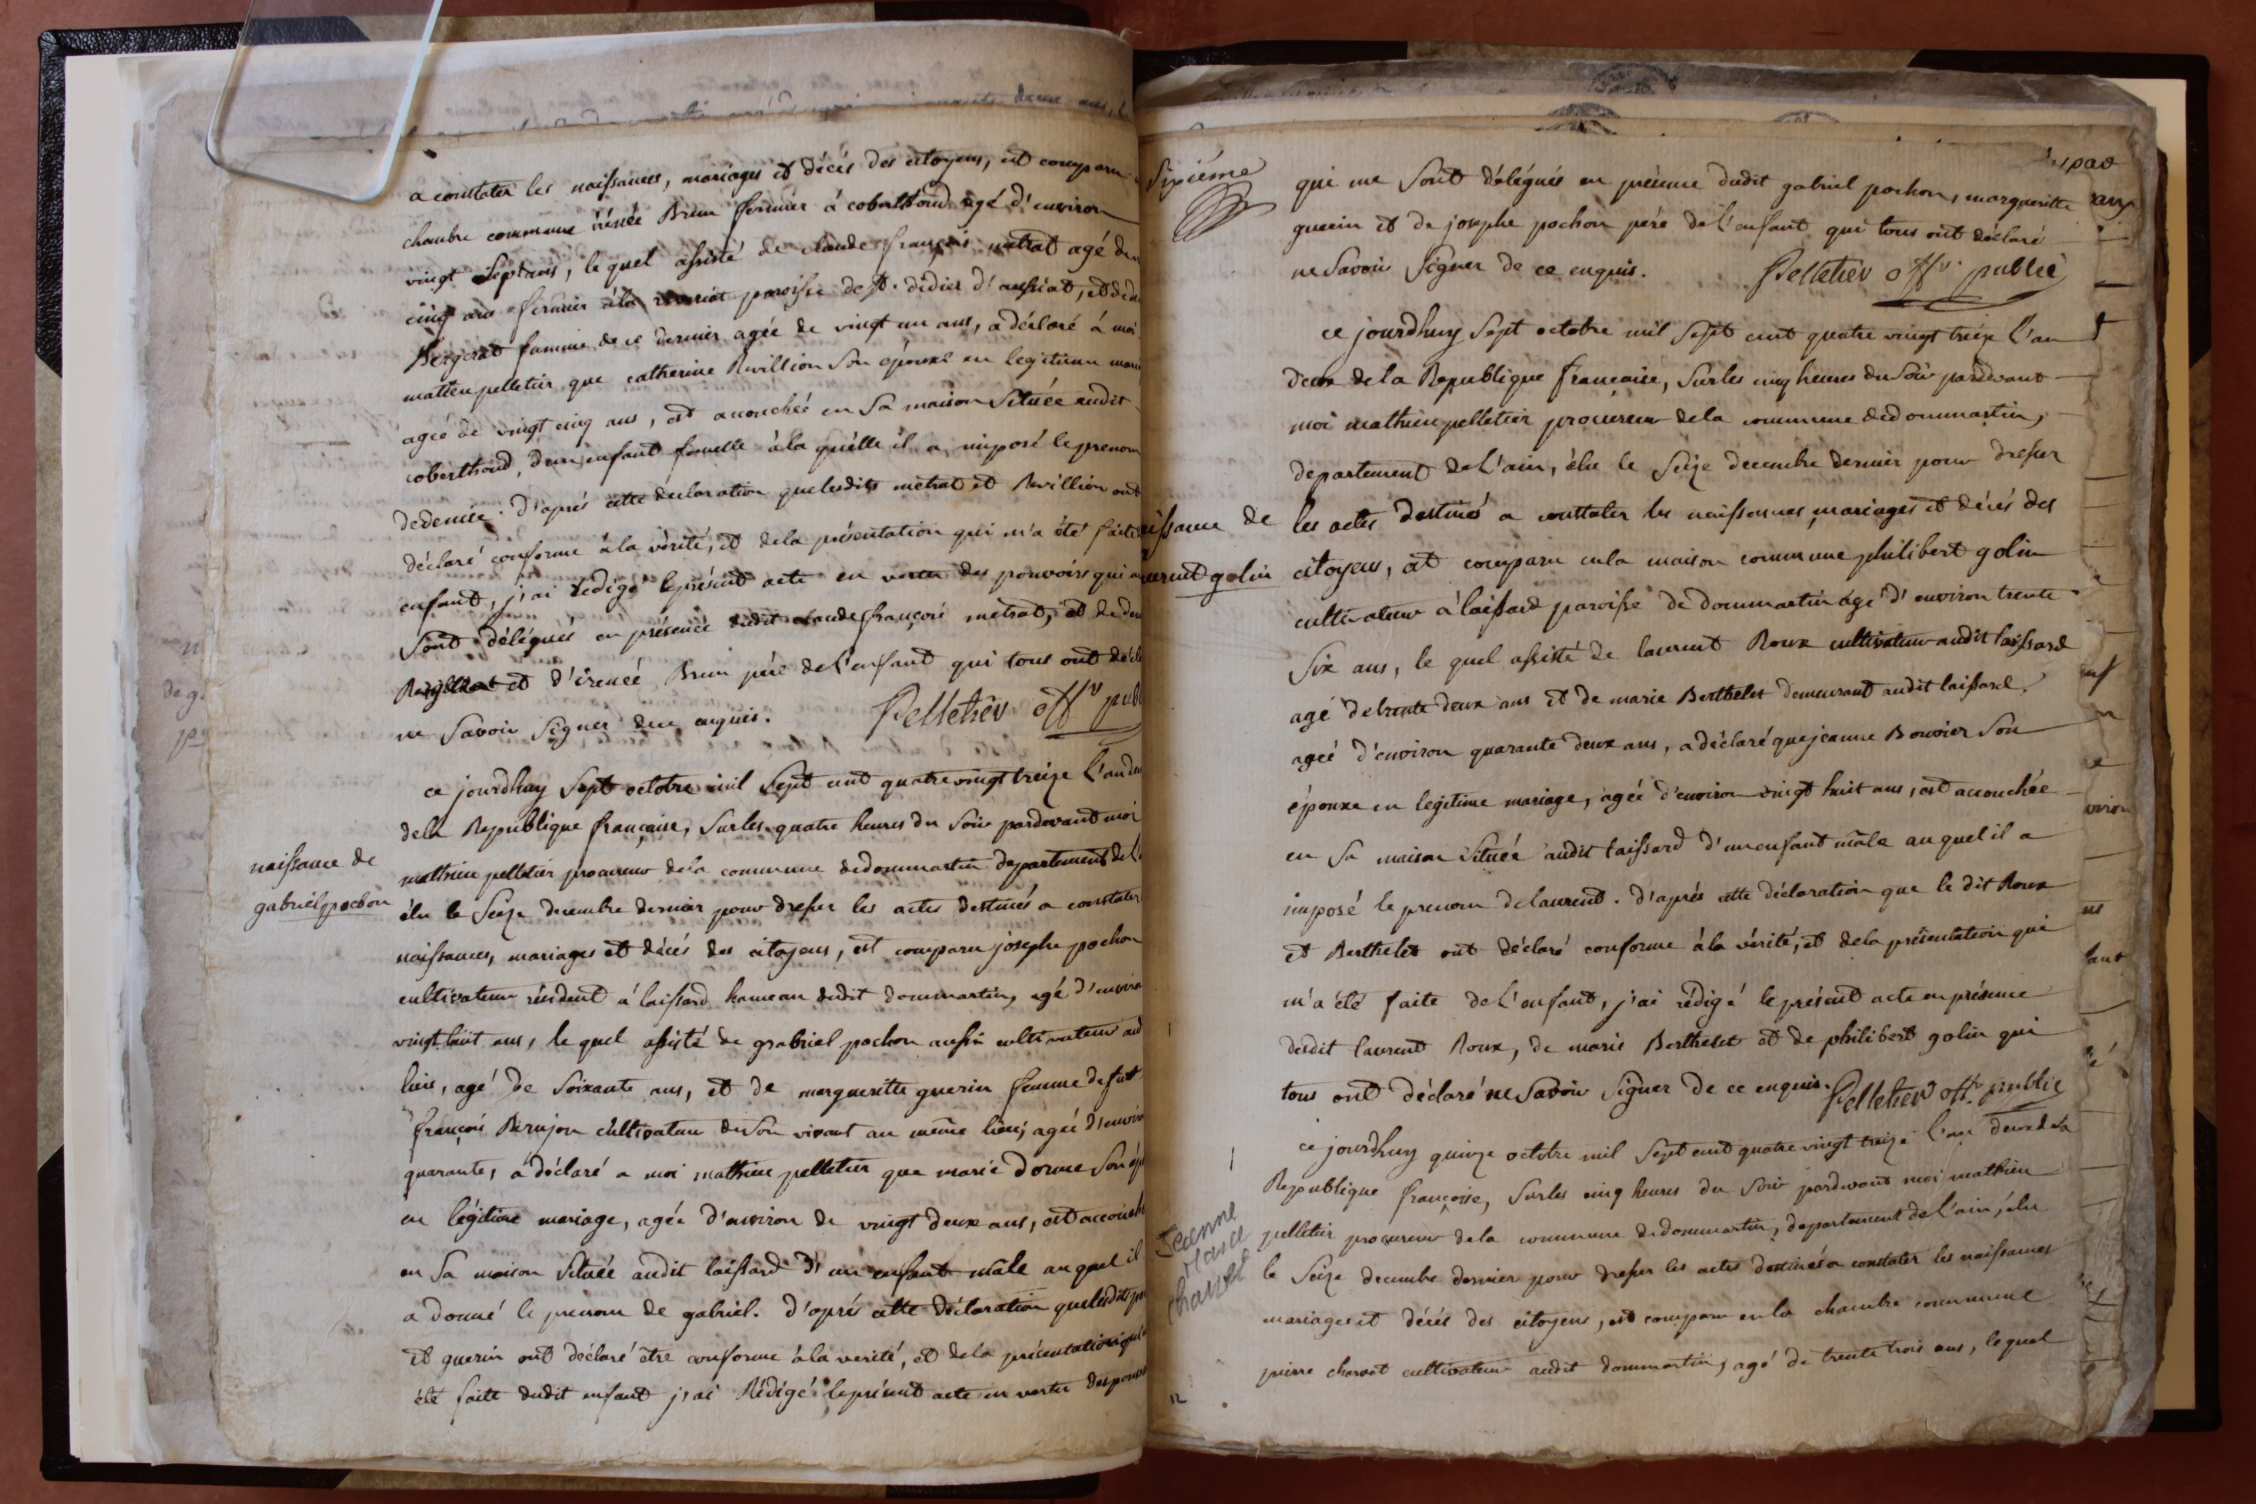 a constater les naissances, mariages et décès des citoyens, est comparu
chambre commune irénée Brun fermier à coberthoud agé d'environ
vingt sept ans, le quel assisté de claude françois metrat agé de
cinq ans fermier à la paroisse de st. didier d'aussiat, et de de
femme de ce dernier agée de vingt un ans, a déclaré à moi
mattieu pelletier que catherine Revillion son épouse en legitime mari
agée de vingt cinq ans, est accouchée en sa maison située audit
coberthoud, d'un enfant femelle à la quelle il a imposé le prenom
de denise. d'après cette déclaration que lesdits metrat et Revillion ont
déclaré conforme à la vérité, et de la présentation qui m'a été faite
enfant, j'ai rédigé le présent acte en vertu des pouvoirs qui m
sont délégués en présence dudit claude françois metrat, et de de
et d'irenée Brun père de l'enfant qui tous ont décl
ne savoir signer de ce enquis. Pelletier offr publ
ce jourdhuy sept octobre mil sept cent quatre vingt treize l'an deu
de la Republique française, sur les quatre heures du soir pardevant moi
naissance de
gabriel pochon
mathieu pelletier procureur de la commune de dommartin departement de l'
élu le seize decembre dernier pour dresser les actes destinés a constater
naissances, mariages et décès des citoyens, est comparu josephe pochon
cultivateur résident à laissard hameau dudit dommartin, agé d'enviro
vingt huit ans, le quel assisté de grabriel pochon aussi cultivateur aud
lieu, agé de soixante ans, et de marguerite guerin femme de fut
françois Berujon cultivateur de son vivant au même lieu, agée d'enviro
quarante, a déclaré a moi mathieu pelletier que marie dorme son épo
en légitime mariage, agée d'environ de vingt deux ans, est accouché
en sa maison située audit laissard d'un enfant mâle au quel il
a donné le prenom de gabriel. d'après cette déclaration que lesdits po
et guerin ont déclaré être conforme à la verité, et de la présentation qui
été faite dudit enfant j'ai Rédigé le présent acte en vertu des pouvo
sixiéme
qui me sont délégués en présence dudit gabriel pochon, marguerite
guerin et de josephe pochon père de l'enfant qui tous ont déclaré
ne savoir signer de ce enquis. Pelletier offr. public
ce jourdhuy sept octobre mil sept cent quatre vingt treize l'an
deux de la Republique française, sur les cinq heures du soir pardevant
moi mathieu pelletier procureur de la commune de dommartin,
departement de l'ain, élu le seize decembre dernier pour dresser
issance de
urent golin
les actes destinés a constater les naissances, mariages et décés des
citoyens, est comparu en la maison commune philibert golin
cultivateur à laissard paroisse de dommartin agé d'environ trente
six ans, le quel assisté de laurent Roux cultivateur audit laissard
agé de trente deux ans et de marie Berthelet demeurant audit laissard,
agée d'environ quarante deux ans, a déclaré que jeanne Bouvier son
épouse en legitime mariage, agée d'environ vingt huit ans, est accouchée
en sa maison située audit laissard d'un enfant mâle au quel il a
imposé le prenom de laurent. d'après cette déclaration que le dit Roux
et Berthelet ont déclaré conforme à la vérité, et de la présentation qui
m'a été faite de l'enfant, j'ai rédigé le présent acte en présence
desdit laurent Roux, de marie Berthelet et de philibert golin qui
tous ont déclaré ne savoir signer de ce enquis. Pelletier offr. public
ce jourdhuy quinze octobre mil sept cent quatre vingt treize l'an deux de la
Republique françoise, sur les cinq heures du soir pardevant moi mathieu
Jeanne
Marie
Charvet
pelletier procureur de la commune de dommartin, departement de l'ain, élu
le seize decembre dernier pour dresser les actes destinés a constater les naissances
mariages et décés des citoyens, est comparu en la chambre commune
pierre charvet cultivateur audit dommartin, agé de trente trois ans, le quel
12